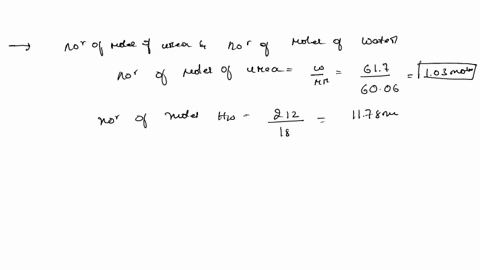 → no^r of moles of urea & no^r of moles of water
no^r of moles of urea = w/MM = 61.7/60.06 = 1.03 moles
no^r of moles H₂O = 212/18 = 11.78 m